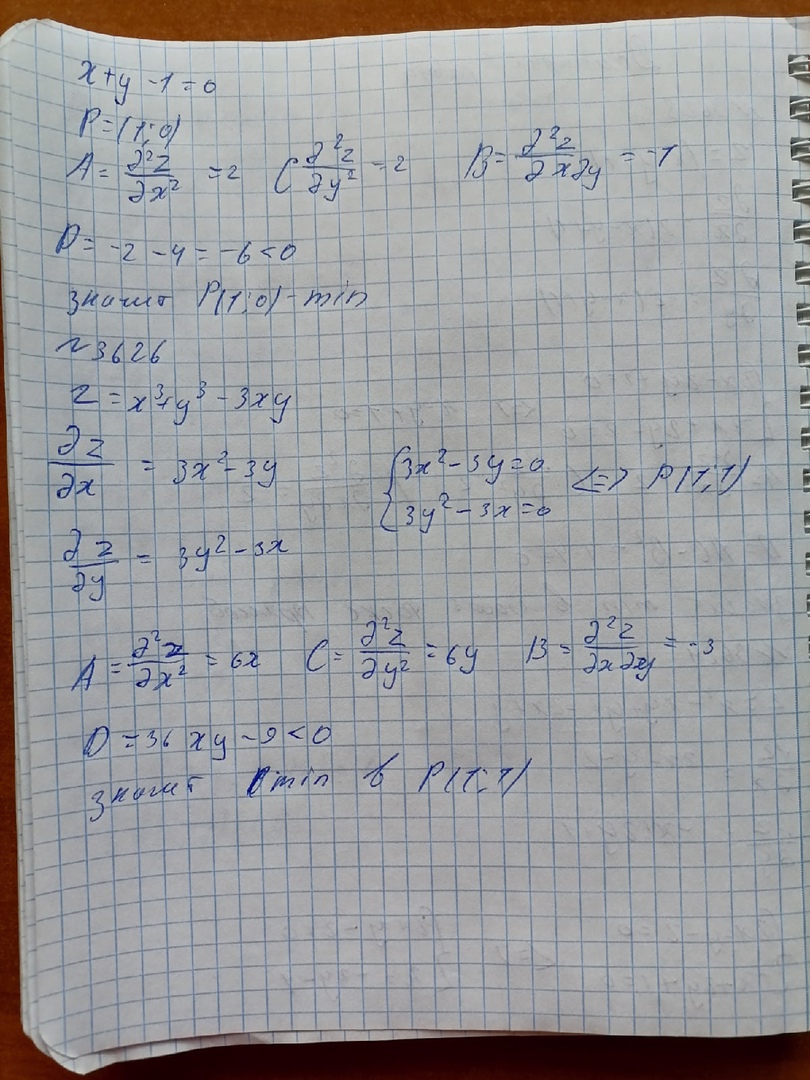 x+y-1=0
P=(1;0)
A = ∂²z/∂x² = 2 C ∂²z/∂y² = 2 B = ∂²z/∂x∂y = -1
D = -2 - 4 = -6 < 0
значит P(1;0) - min
№3626
z = x³+y³-3xy
∂z/∂x = 3x²-3y { 3x²-3y=0 3y²-3x=0 <=> P(1;1)
∂z/∂y = 3y²-3x
A = ∂²z/∂x² = 6x C = ∂²z/∂y² = 6y B = ∂²z/∂x∂y = -3
D = 36xy - 9 < 0
значит min в P(1;1)